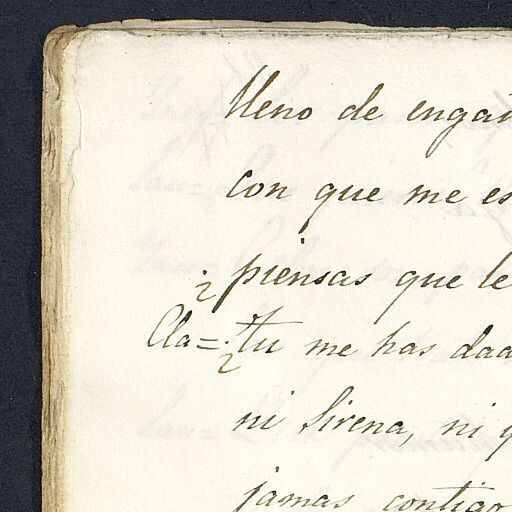 lleno de engañ
con que me es
¿piensas que le
Cla= ¿tu me has dad
ni Sirena, ni y
jamas contigo